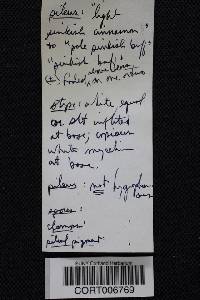 pileus: "light
pinkish cinnamon"
to "pale pinkish buff"
"pinkish buff"
stipe: white equal
or slt inflated
at base; copious
white mycelium
at base.
pileus: not hygrophanous
spores:
clamps:
pileal pigment:
SUNY Cortland Herbarium
CORT006769